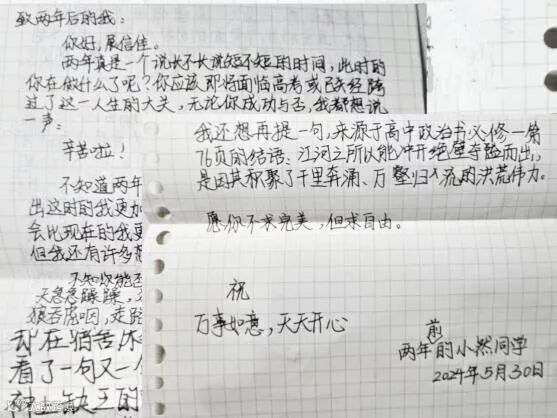 致两年后的我：
你好，展信佳。
两年真是一个说长不长说短不短的时间，此时的
你在做什么了呢？你应该即将面临高考或已经跨
过了这一人生的大关，无论你成功与否，我都想说
一声：
辛苦啦！
不知道两年
出这时的我更加
会比现在的我更
但我还有许多想
不知你能否
天急急躁躁，
狼吞虎咽，走路
却在宿舍休
看了一句又一个
我还想再提一句，来源于高中政治书必修一第
76页的结语：江河之所以能冲开绝壁夺隘而出，
是因其积聚了千里奔涌、万壑归流的洪荒伟力。
愿你不求完美，但求自由。
祝
万事如意，天天开心
两年前的小然同学
2024年5月30日